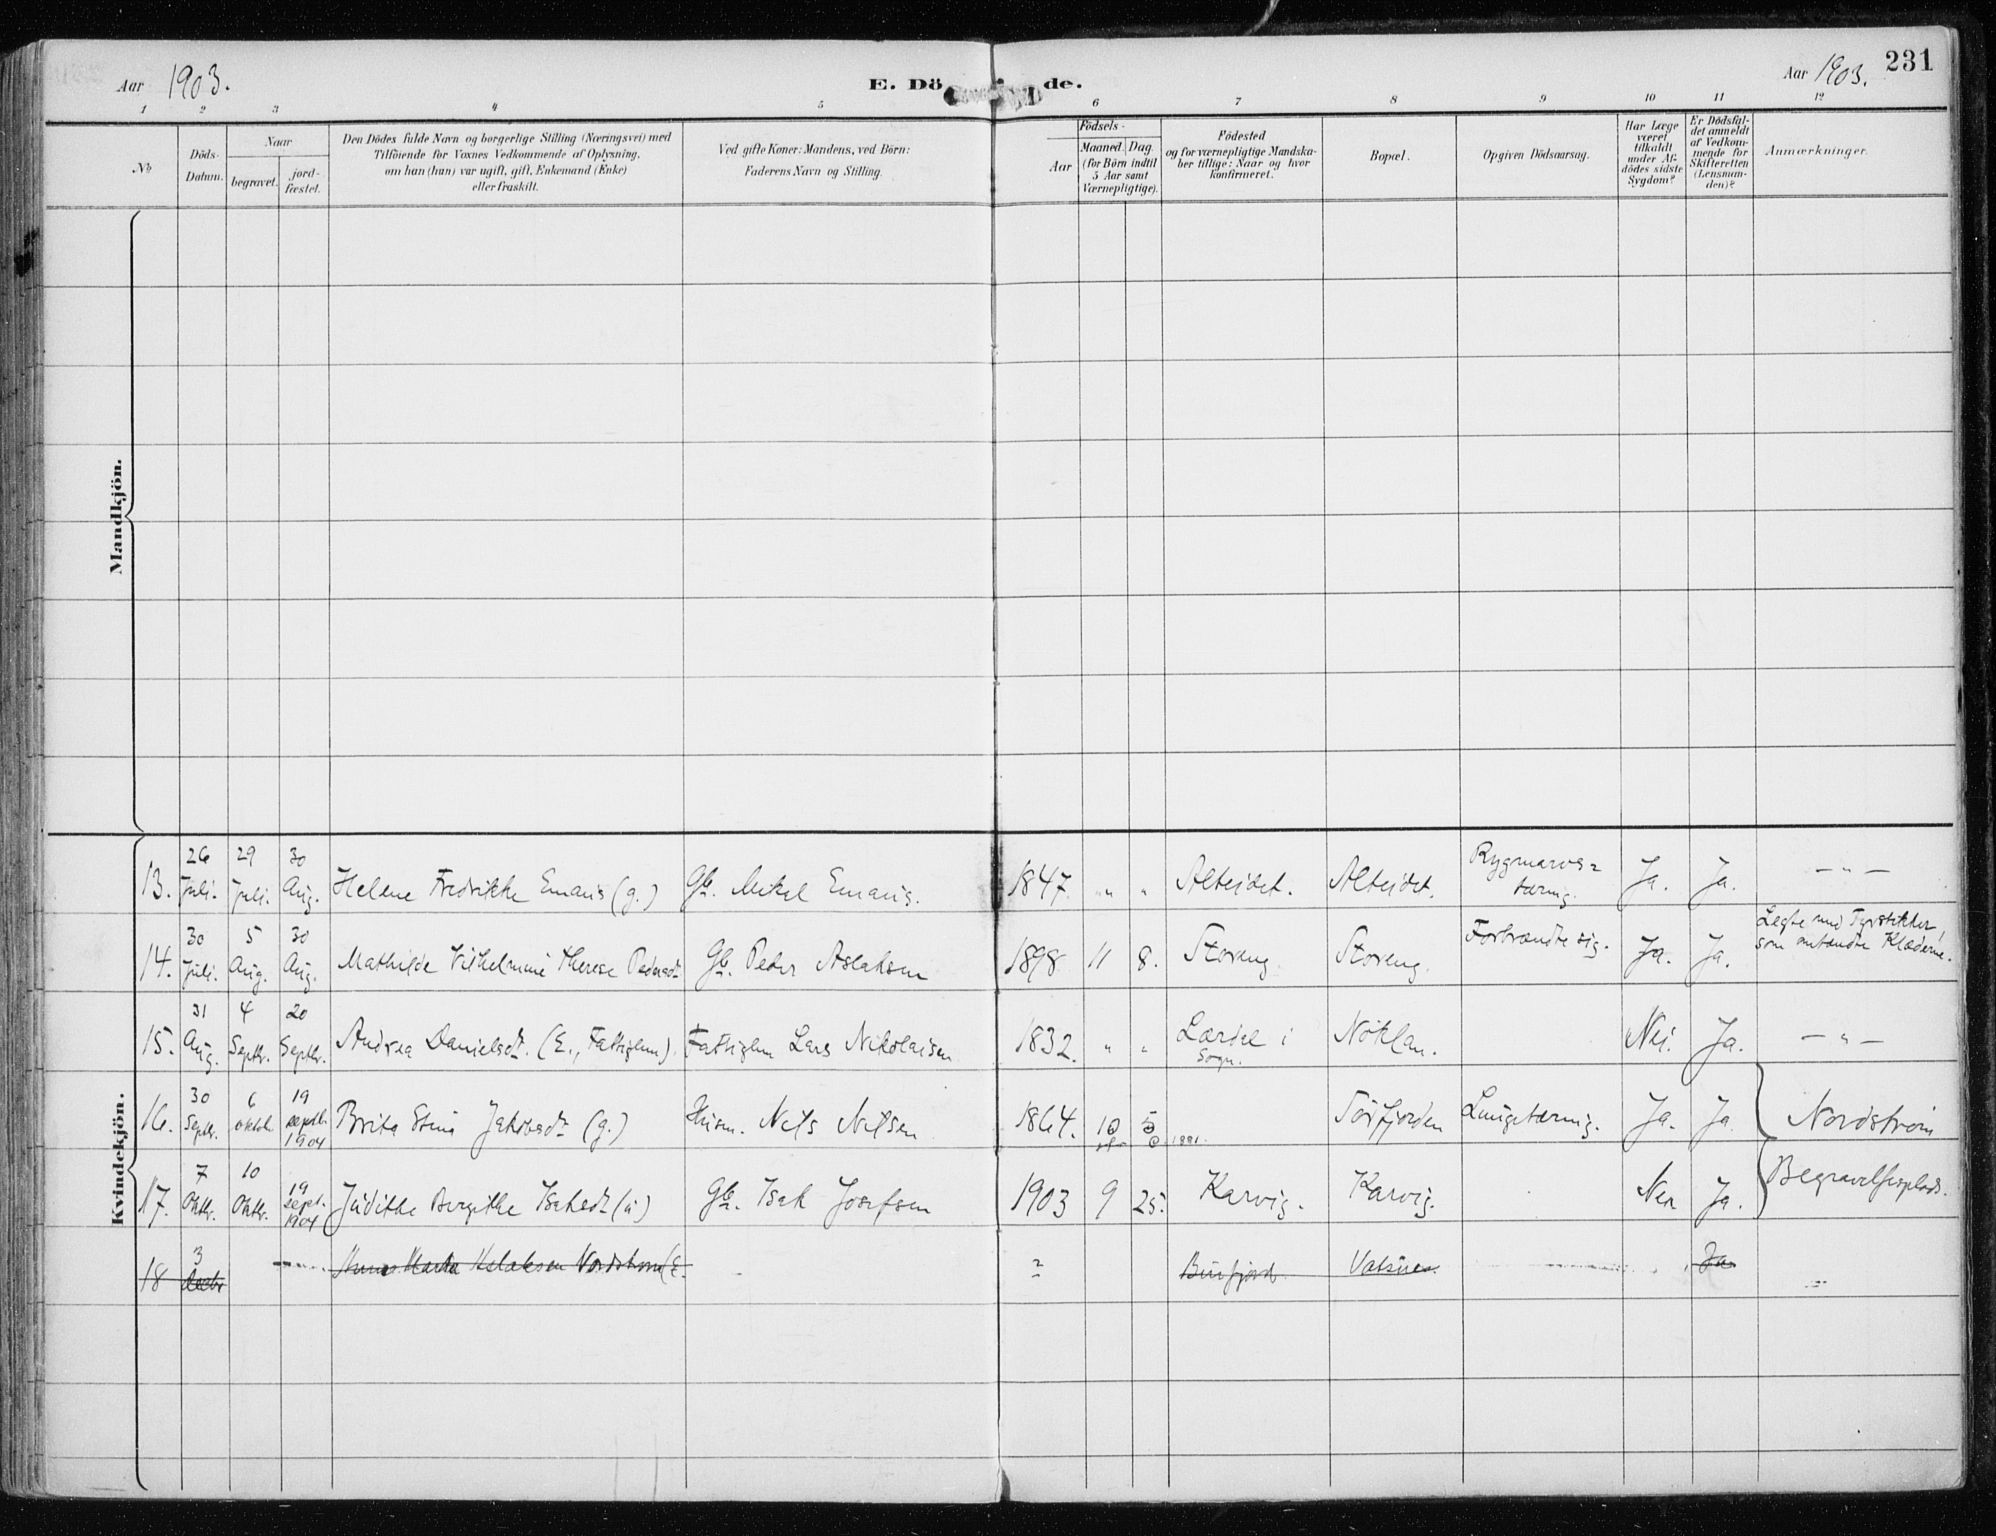 Aar 1903. E. Dö de. Aar 1903. 231
1 2 3 4 5 6 7 8 9 10 11 12
No.
Döds-
Datum.
Naar
begravet.
jord-
fæstet.
Den Dödes fulde Navn og borgerlige Stilling (Næringsvei) med
Tilföiende for Voxnes Vedkommende af Oplysning,
om han (hun) var ugift, gift, Enkemand (Enke)
eller fraskilt.
Ved gifte Koner: Mandens, ved Börn:
Faderens Navn og Stilling.
Födsels-
Aar
Maaned. Dag.
(for Börn indtil
5 Aar samt
Værnepligtige).
Födested
og for værnepligtige Mandska-
ber tillige: Naar og hvor
konfirmeret.
Bopæl.
Opgiven Dödsaarsag.
Har Læge
været
tilkaldt
under Af-
dödes sidste
Sygdom?
Er Dödsfal-
det anmeldt
af Vedkom-
mende for
Skifteretten
(Lensman-
den)?
Anmærkninger.
Mandkjön.
Kvindekjön.
13. 26 Juli. 29 Juli. 30 Aug. Helene Fredrikke Emaus (g.) Gb. Mikel Emaus. 1847. " " Alteidet. Alteidet. Rygmarvs=
tæring. Ja. Ja. — " —
14. 30 Juli. 5 Aug. 30 Aug. Mathilde Vilhelmine Therese Pedersdt. Gb. Peder Aslaksen 1898 11 8. Storeng Storeng. Forbrændte sig. Ja. Ja. Legte med Fyrstikker,
som antændte Klæderne.
15. 31 Aug. 4 Septbr. 20 Septbr. Andrea Danielsdt. (E., Fattiglem). Fattiglem Lars Nikolaisen 1832. " " Lærdal i
Sogn. Nöklan. Nei. Ja. — " —
16. 30 Septbr. 6 Oktbr. 19 septbr. 1904 Brita Stina Jakobsdt (g.) Husm. Nils Nilsen 1864. 1881. Lungetæring. Ja. Ja. Nordstrøm
17. 7 Oktbr. 10 Oktbr. 19 sept. 1904 Judithe Bergithe Isaksdt (u) Gb. Isak Josefsen 1903 9 25. Karvig. Karvig. Nei Ja. Begravelsesplads.
18 3 Decbr Maria Nordstrøm (E. ? Burfjord Ja